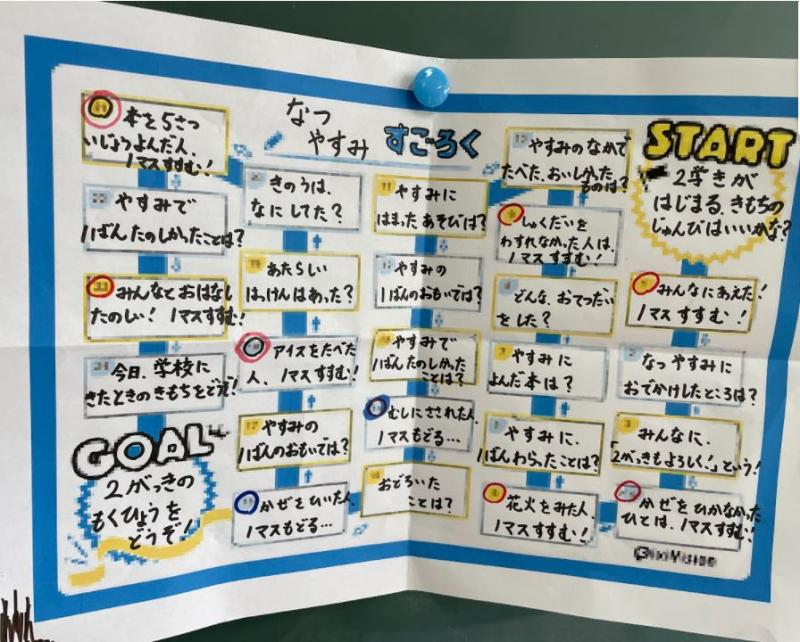 なつ
やすみ すごろく
START
2学きが
はじまる、きもちの
じゅんびはいいかな?
みんなにあえた!
1マスすすむ!
なつやすみに
おでかけしたところは?
みんなに、
「2がっきもよろしく!」という!
かぜをひかなかった
ひとは、1マスすすむ!
花火をみた人、
1マスすすむ!
やすみに、
1ばんわらったことは?
やすみに
よんだ本は?
どんな、おてつだい
をした?
しゅくだいを
わすれなかった人は、
1マスすすむ!
やすみのなかで
たべた、おいしかった
ものは?
11
やすみに
はまったあそびは?
やすみの
1ばんのおもいでは?
やすみで
1ばんたのしかった
ことは?
むしにさされた人、
1マスもどる…
おどろいた
ことは?
かぜをひいた人、
1マスもどる…
やすみの
1ばんのおもいでは?
アイスをたべた
人、1マスすすむ!
あたらしい
はっけんはあった?
きのうは、
なにしてた?
本を5さつ
いじょうよんだ人、
1マスすすむ!
やすみで
1ばんたのしかったことは?
みんなとおはなし
たのしい!1マスすすむ!
今日、学校に
きたときのきもちをどうぞ!
GOAL
2がっきの
もくひょうを
どうぞ!